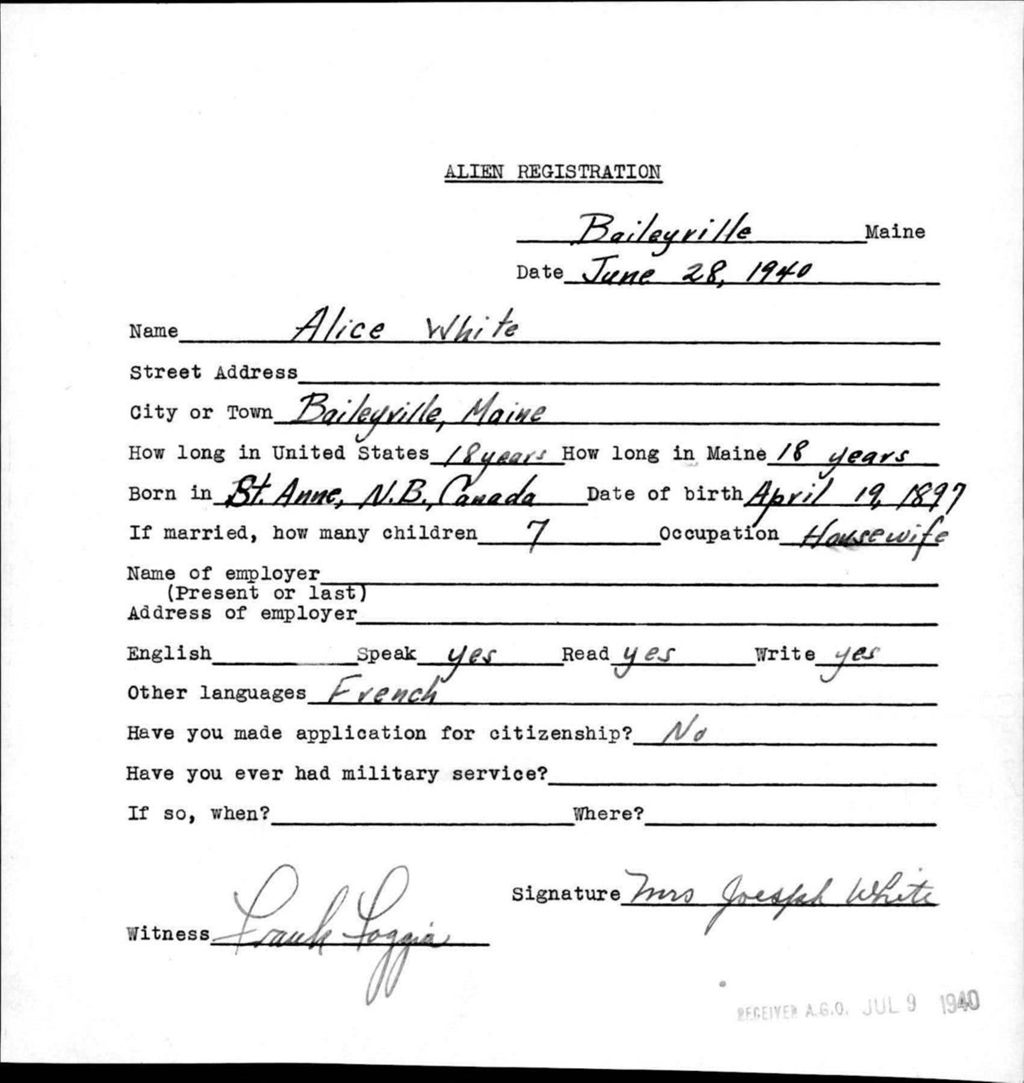 ALIEN REGISTRATION
Baileyville Maine
Date June 28, 1940
Name Alice White
Street Address
City or Town Baileyville, Maine
How long in United States 18 years How long in Maine 18 years
Born in St. Anne, N.B., Canada Date of birth April 19, 1897
If married, how many children 7 Occupation Housewife
Name of employer
(Present or last)
Address of employer
English Speak yes Read yes Write yes
Other languages French
Have you made application for citizenship? No
Have you ever had military service?
If so, when? Where?
Signature Mrs Joesph White
Witness Frank Foggia
RECEIVED A.G.O. JUL 9 1940